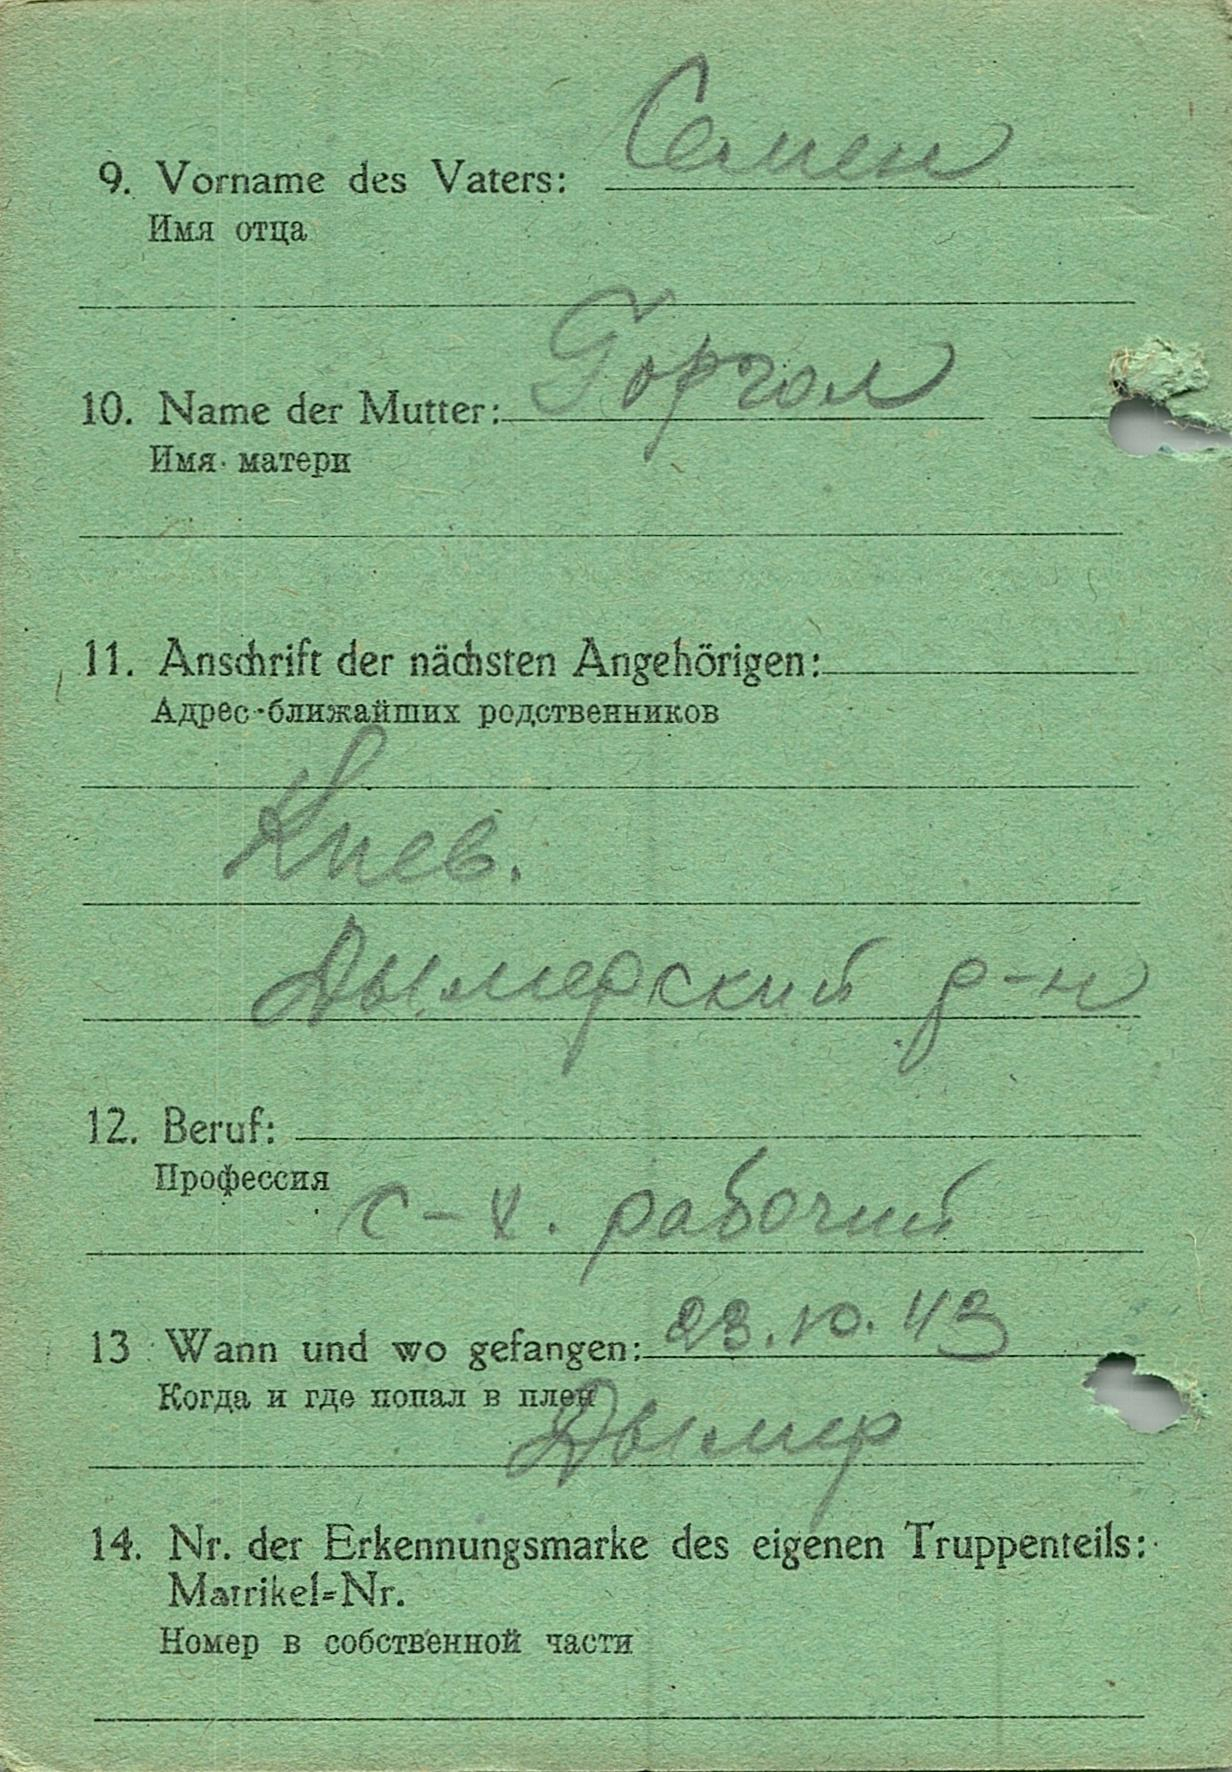 Семен
9. Vorname des Vaters:
Имя отца
Горгол
10. Name der Mutter:
Имя матери
11. Anschrift der nächsten Angehörigen:
Адрес ближайших родственников
Киев.
Дымерский р-н
12. Beruf:
Профессия
с-х. рабочий
13 Wann und wo gefangen: 23.10.43
Когда и где попал в плен
Дымер
14. Nr. der Erkennungsmarke des eigenen Truppenteils:
Matrikel=Nr.
Номер в собственной части